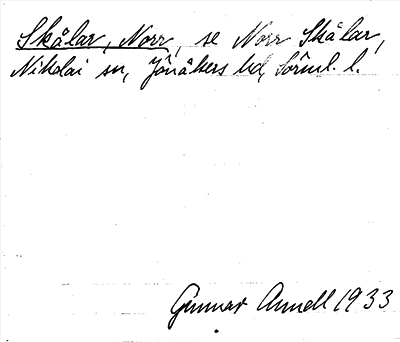 Skålar, Norr, se Norr Skålar,
Nikolai sn, Jönåkers hd, Sörml. l.
Gunnar Annell 1933